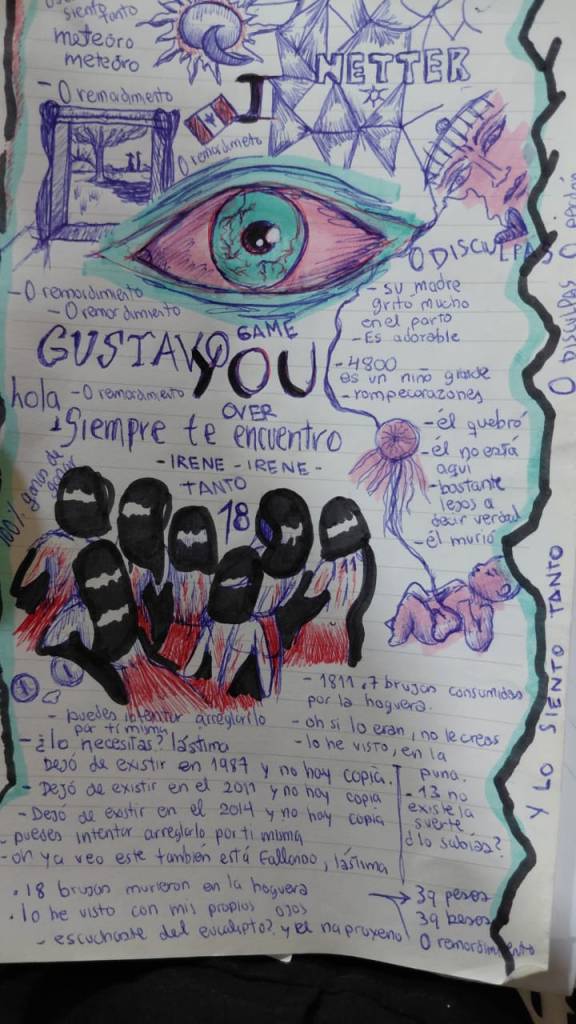 siento tanto
meteoro
meteoro
- 0 remordimiento
I
NETTER
0 remordimeto
0 DISCULPAS
- 0 remordimiento
- 0 remordimiento
- su madre
grito mucho
en el parto
- Es adorable
GUSTAVO
GAME
YOU
OVER
- 4800
es un niño grande
- rompecorazones
hola
- 0 remordimiento
Siempre te encuentro
- IRENE - IRENE -
TANTO
18
100% ganas de
- él quebró
- él no está
aquí
- bastante
lejos a
decir verdad
- él murió
- puedes intentar arreglarlo
por ti misma
- ¿lo necesitas? lástima
Dejó de existir en 1987 y no hay copia.
- Dejó de existir en el 2011 y no hay copia
- Dejó de existir en el 2014 y no hay copia
- puedes intentar arreglarlo por ti misma
- oh ya veo este también está fallando, lástima
- 1811. 7 brujas consumidas
por la hoguera.
- oh si lo eran, no le creas
- lo he visto, en la
puna.
- 13 no
existe la
suerte
¿lo sabías?
. 18 brujas murieron en la hoguera
. lo he visto con mis propios ojos
- escuchaste del eucalipto? y el naproxeno
39 pesos
39 besos
0 remordimiento
0 DISCULPAS 0
Y LO SIENTO TANTO